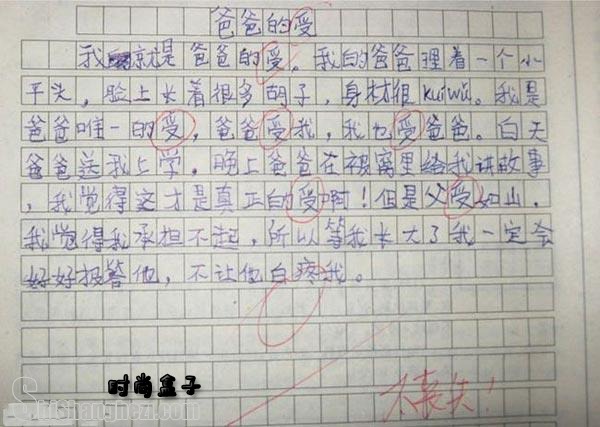 爸爸的受
我就是爸爸的受。我的爸爸理着一个小
平头，脸上长着很多胡子，身材很kuiwú。我是
爸爸唯一的受，爸爸受我，我也受爸爸。白天
爸爸送我上学。晚上爸爸在被窝里给我讲故事
，我觉得这才是真正的受啊！但是父受如山，
我觉得我承担不起，所以等我长大了我一定会
好好报答他，不让他白疼我。
时尚盒子
Shishanghezi.com
太丧失！